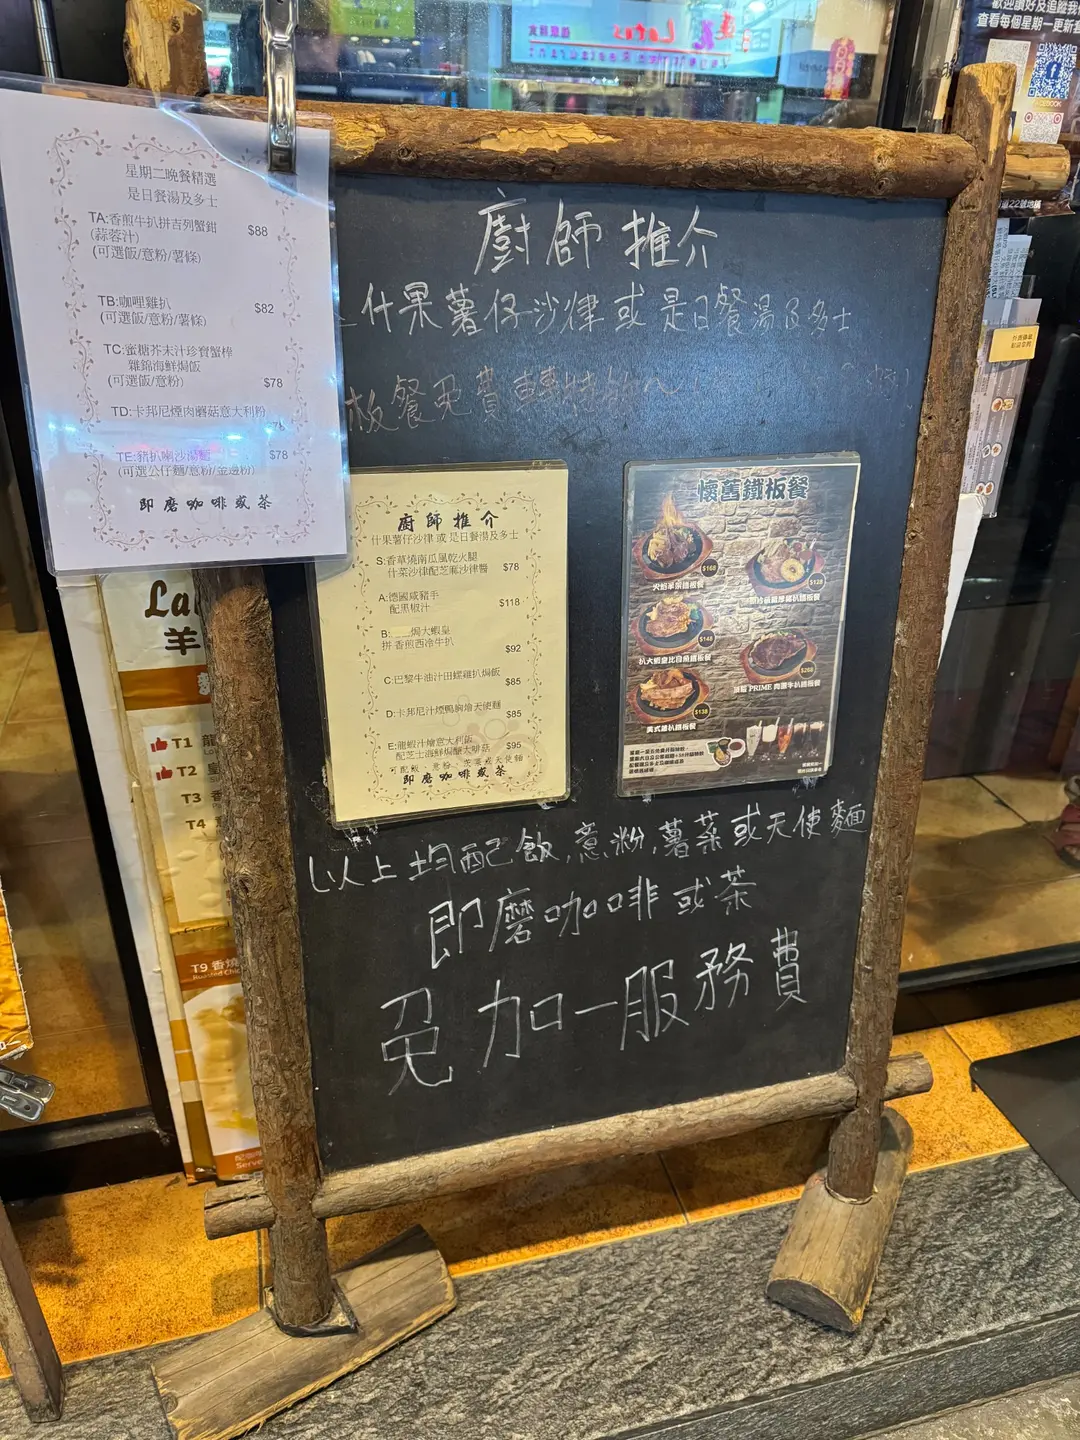 Lotus
歡迎讚好及追蹤我
查看每個星期一更新
星期二晚餐精選
是日餐湯及多士
TA:香煎牛扒拼吉列蟹鉗 $88
(蒜蓉汁)
(可選飯/意粉/薯條)
TB:咖哩雞扒 $82
(可選飯/意粉/薯條)
TC:蜜糖芥末汁珍寶蟹棒
雜錦海鮮焗飯
(可選飯/意粉) $78
TD:卡邦尼煙肉蘑菇意大利粉
78
TE:豬扒喇沙湯麵 $78
(可選公仔麵/意粉/金邊粉)
即磨咖啡或茶
廚師推介
什果薯仔沙律或是日餐湯及多士
板餐免費轉
廚師推介
什果薯仔沙律或是日餐湯及多士
S:香草燒南瓜風乾火腿
什菜沙律配芝麻沙律醬 $78
A:德國咸豬手
配黑椒汁 $118
B: 焗大蝦皇
拼香煎西冷牛扒 $92
C:巴黎牛油汁田螺雞扒焗飯 $85
D:卡邦尼汁煙鴨胸燴天使麵 $85
E:龍蝦汁燴意大利飯 $95
配芝士海鮮焗釀大啡菇
可配飯、意粉、茨菜或天使麵
即磨咖啡或茶
懷舊鐵板餐
$168
$128
$148
$268
頂級 PRIME 肉眼牛扒鐵板餐
$138
美式雞扒鐵板餐
以上均配飯,意粉,薯菜或天使麵
即磨咖啡或茶
免加一服務費
La
羊
T1 龍
T2 皇
T3 香
T4
T9 香燒
Roasted Chic
Serve